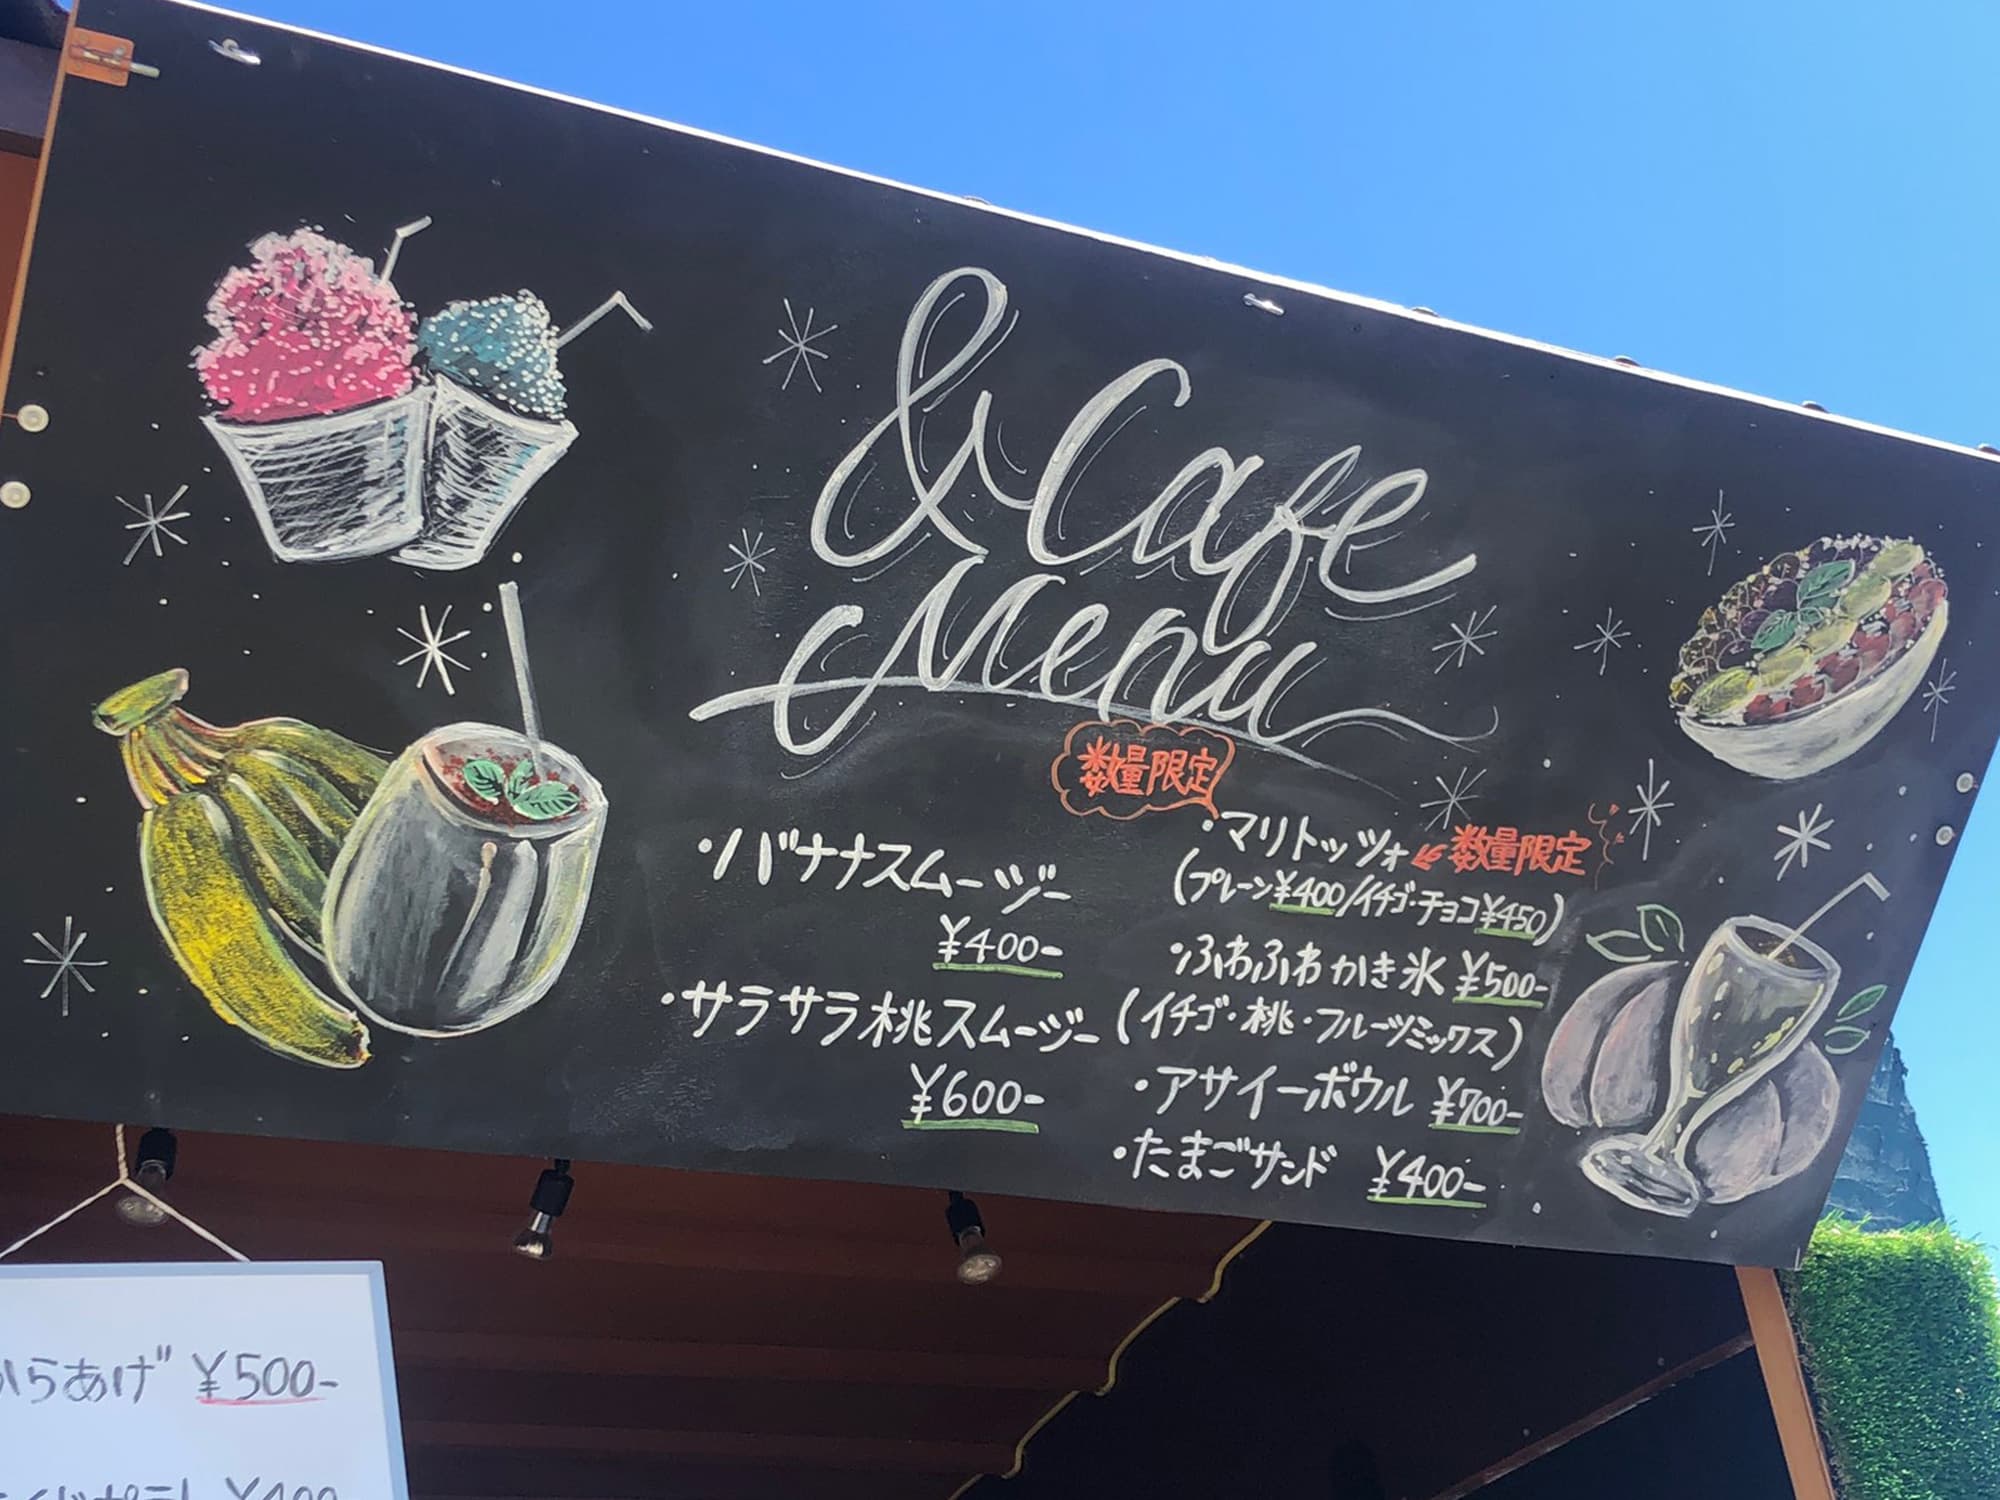 & Cafe
Menu
・バナナスムージー
¥400-
・サラサラ桃スムージー
¥600-
数量限定
・マリトッツォ ← 数量限定
(プレーン¥400/イチゴ・チョコ¥450)
・ふわふわかき氷 ¥500-
(イチゴ・桃・フルーツミックス)
・アサイーボウル ¥700-
・たまごサンド ¥400-
からあげ ¥500-
¥400